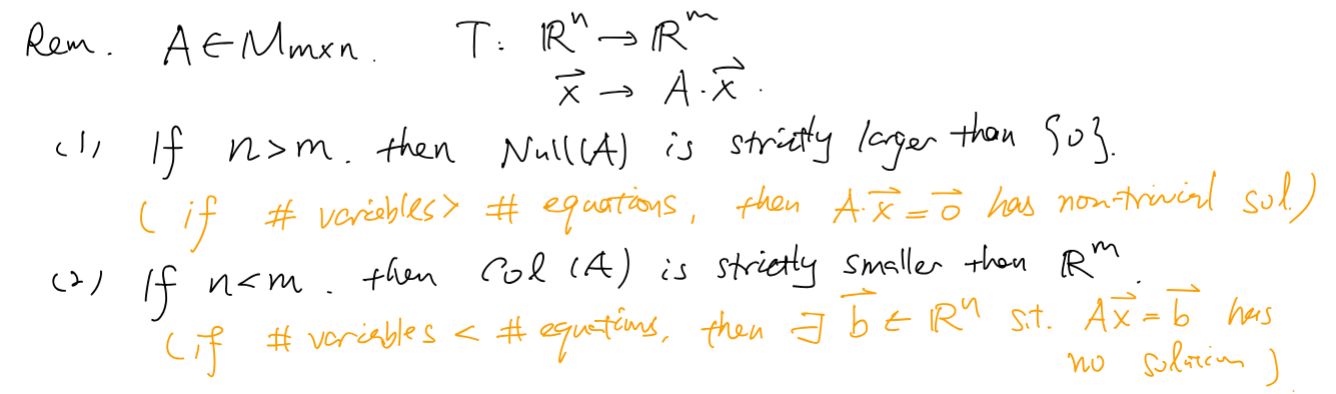 Rem. A ∈ Mm×n. T: ℝⁿ → ℝᵐ
x⃗ → A·x⃗.
(1) If n>m. then Null(A) is strictly larger than {0}.
( if # variables> # equations, then A·x⃗ = 0⃗ has non-trivial sol.)
(2) If n<m. then Col (A) is strictly smaller than ℝᵐ.
(if # variables < # equations, then ∃ b⃗ ∈ ℝⁿ s.t. Ax⃗ = b⃗ has
no solution)